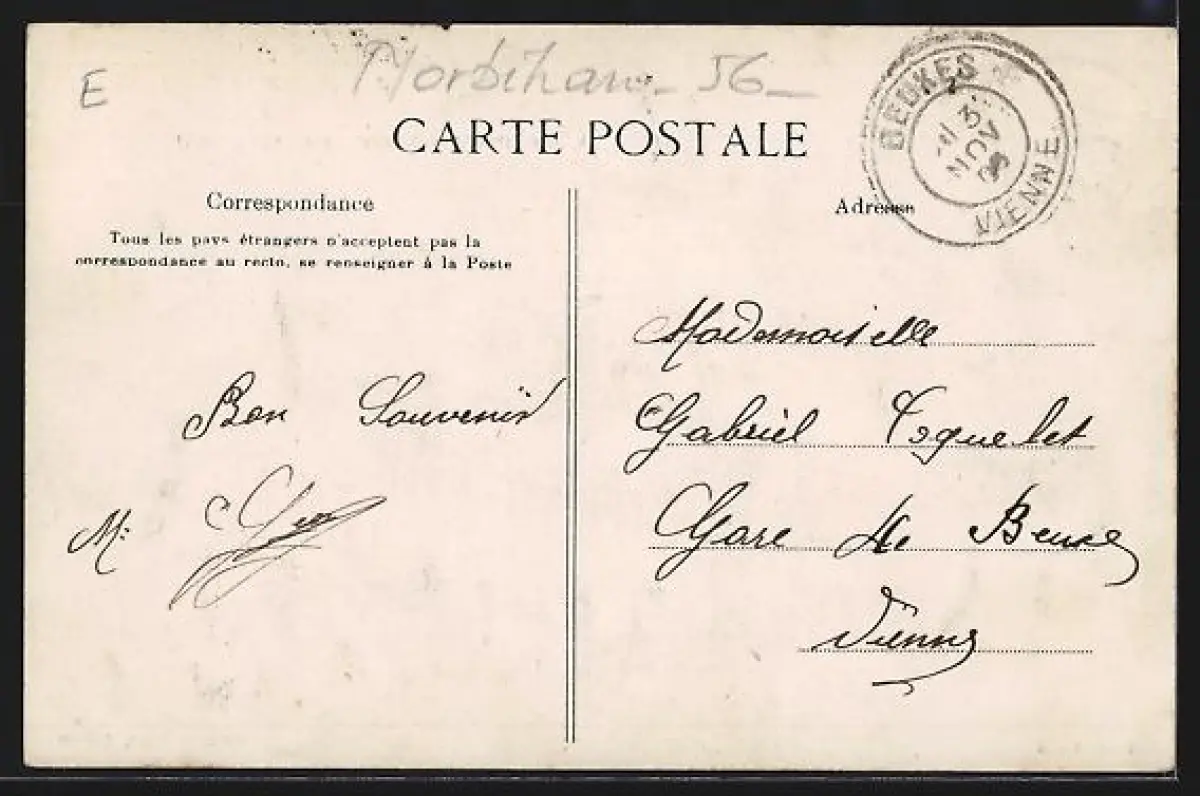 E
Morbihan - 56 -
CARTE POSTALE
VIENNE
3
NOV
Correspondance
Adresse
Tous les pays étrangers n'acceptent pas la
correspondance au recto, se renseigner à la Poste
Mademoiselle
Bon Souvenir
Gabriel
M.
Gare de
Vienne